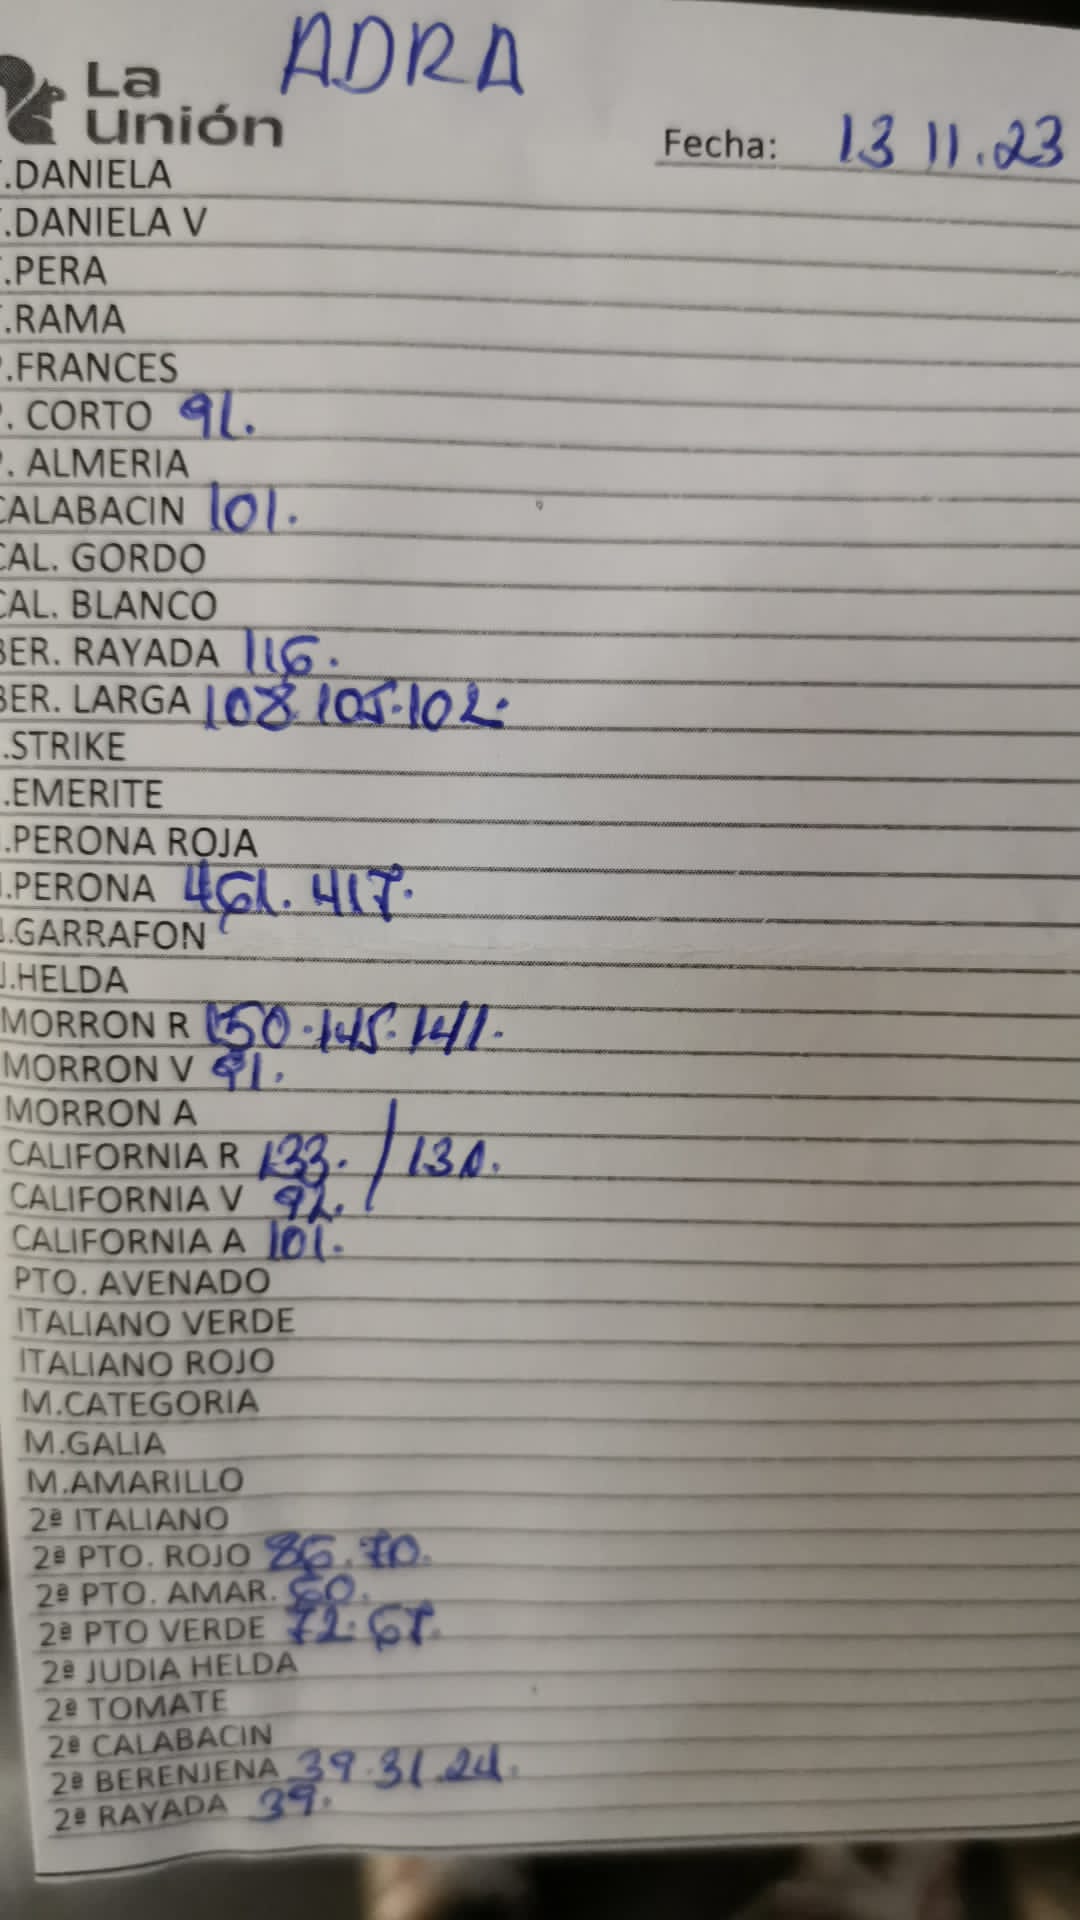 ADRA
La
Unión
Fecha: 13 11.23
.DANIELA
.DANIELA V
.PERA
.RAMA
.FRANCES
. CORTO 91.
. ALMERIA
CALABACIN 101.
CAL. GORDO
CAL. BLANCO
BER. RAYADA 116.
BER. LARGA 108 105.102.
.STRIKE
.EMERITE
.PERONA ROJA
.PERONA 461. 417.
J.GARRAFON
J.HELDA
MORRON R 150.145.141.
MORRON V 91.
MORRON A
CALIFORNIA R 133. / 130.
CALIFORNIA V 92.
CALIFORNIA A 101.
PTO. AVENADO
ITALIANO VERDE
ITALIANO ROJO
M.CATEGORIA
M.GALIA
M.AMARILLO
2ª ITALIANO
2ª PTO. ROJO 86.70.
2ª PTO. AMAR. 60.
2ª PTO VERDE 72.67.
2ª JUDIA HELDA
2ª TOMATE
2ª CALABACIN
2ª BERENJENA 39.31.24.
2ª RAYADA 39.